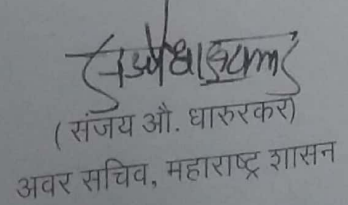 (संजय औ. धारुरकर)
अवर सचिव, महाराष्ट्र शासन